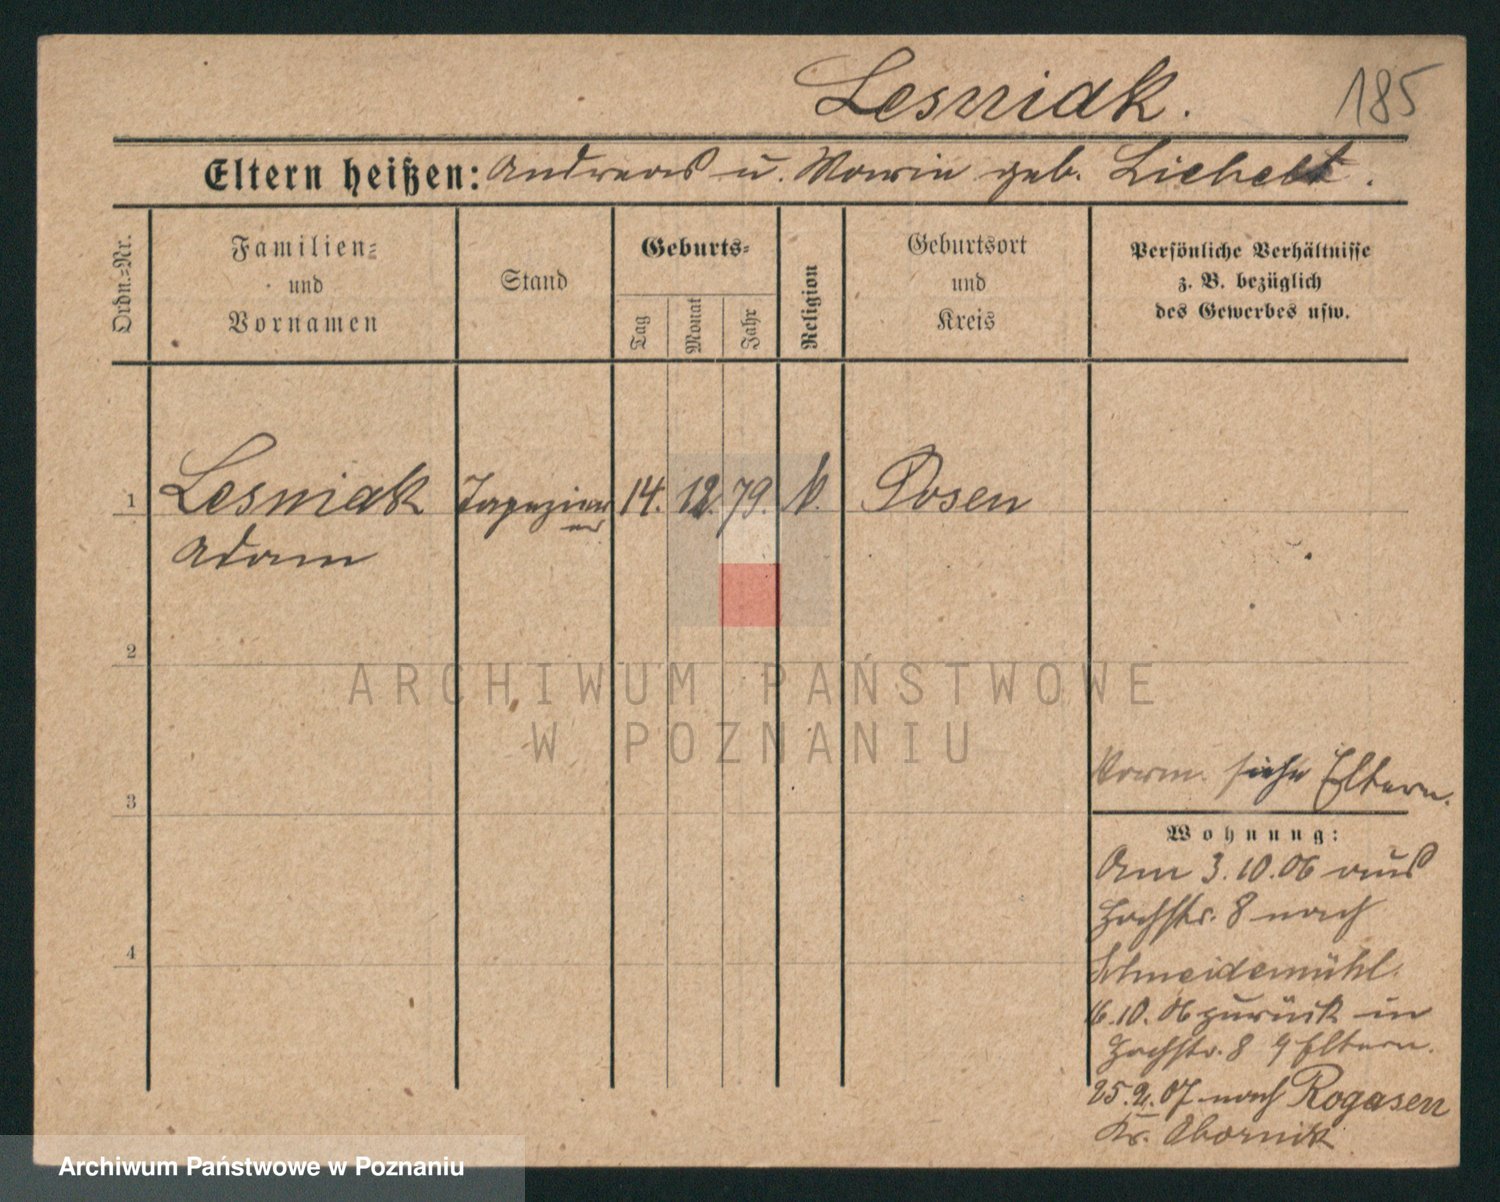 Lesniak.
185
Eltern heißen: Andreas u. Marie geb. Liebelt.
Ordn.=Nr.
Familien=
und
Vornamen
Stand
Geburts=
Tag
Monat
Jahr
Religion
Geburtsort
und
Kreis
Persönliche Verhältnisse
z. B. bezüglich
des Gewerbes usw.
1 Lesniak Tapezierer 14. 12. 79. k. Posen
Adam
2
3
4
Vorm. siehe Eltern.
Wohnung:
Am 3.10.06 aus
8 nach
Schneidemühl.
16.10.06 zurück in
8 Eltern.
25.2.07 nach Rogasen
Kr. Obornik
ARCHIWUM PAŃSTWOWE
W POZNANIU
Archiwum Państwowe w Poznaniu